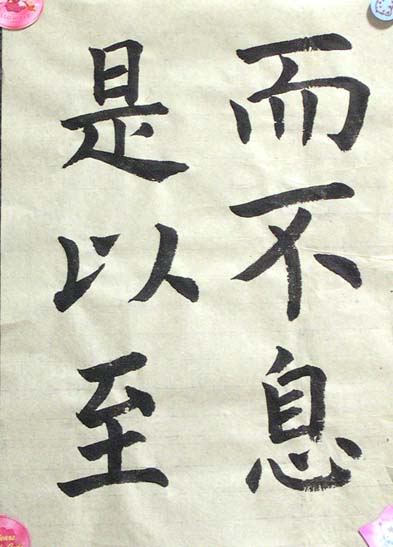 而不息
是以至